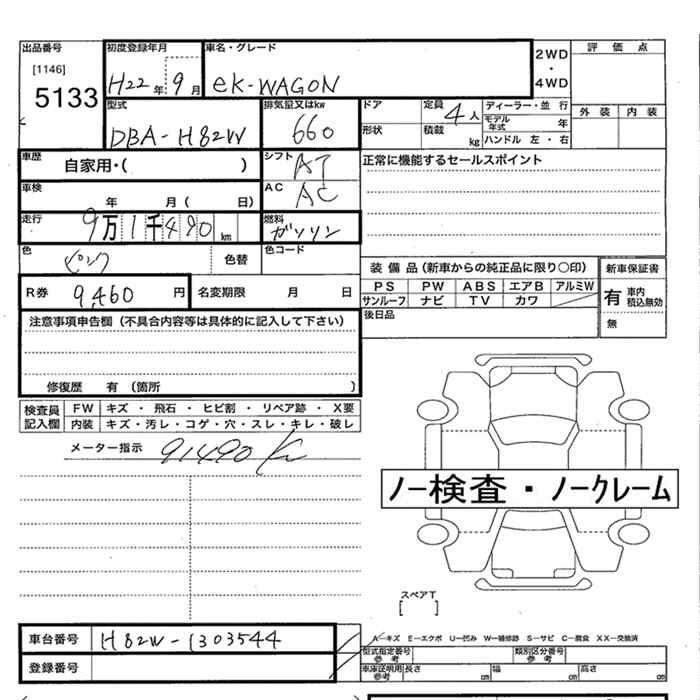 出品番号 初度登録年月 車名・グレード 2WD・4WD 評価点
[1146]
5133 H22年9月 eK-WAGON
型式 排気量又はkw ドア 定員 4人 ディーラー・並行 外装 内装
DBA-H82W 660 形状 積載 kg モデル年式 年
ハンドル 左・右
車歴 自家用・( ) シフト AT 正常に機能するセールスポイント
車検 年 月( 日) AC AC
走行 9万1千490km 燃料 ガソリン
色 ピンク 色替 色コード
装備品(新車からの純正品に限り○印) 新車保証書
R券 9,460円 名変期限 月 日 PS PW ABS エアB アルミW 有 車内積込無効
サンルーフ ナビ TV カワ
注意事項申告欄(不具合内容等は具体的に記入して下さい) 後日品 無
修復歴 有(箇所 )
検査員記入欄 FW キズ・飛石・ヒビ割・リペア跡・X要
内装 キズ・汚レ・コゲ・穴・スレ・キレ・破レ
メーター指示 91490 K
ノー検査・ノークレーム
スペアT
[ ]
車台番号 H82W-1303544 A-キズ E-エクボ U-凹み W-補修跡 S-サビ C-腐食 XX-交換済
登録番号 型式指定番号 参考 類別区分番号 参考
車庫証明用 参考 長さ cm 幅 cm 高さ cm